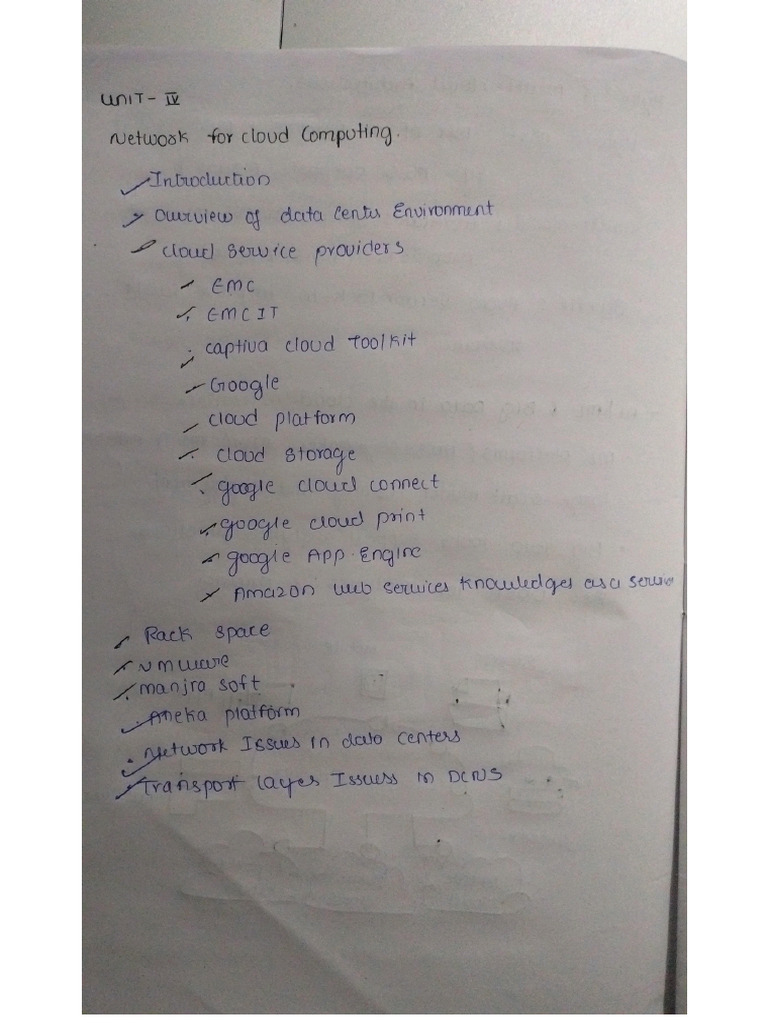 UNIT - IV
Network for cloud Computing.
Introduction
Overview of data Center Environment
cloud service providers
EMC
EMC IT
captiva cloud Toolkit
Google
cloud platform
cloud storage
google cloud connect
google cloud print
google App Engine
Amazon web services knowledges as a service
Rack space
vmware
manjra soft
Aneka platform
Network Issues in data centers
Transport layer Issues in DCNS